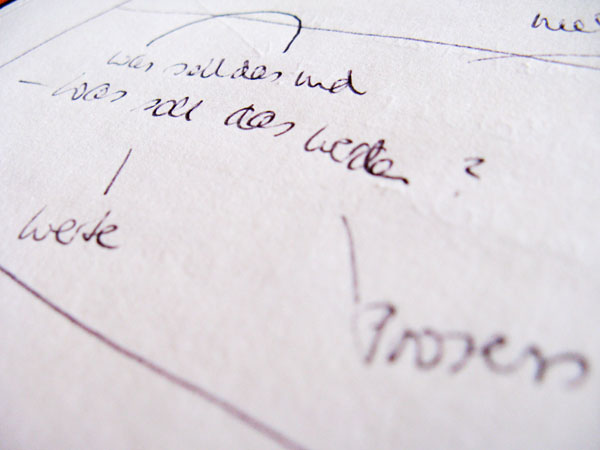 was soll das und
- was soll das werden ?
werte
Prozess